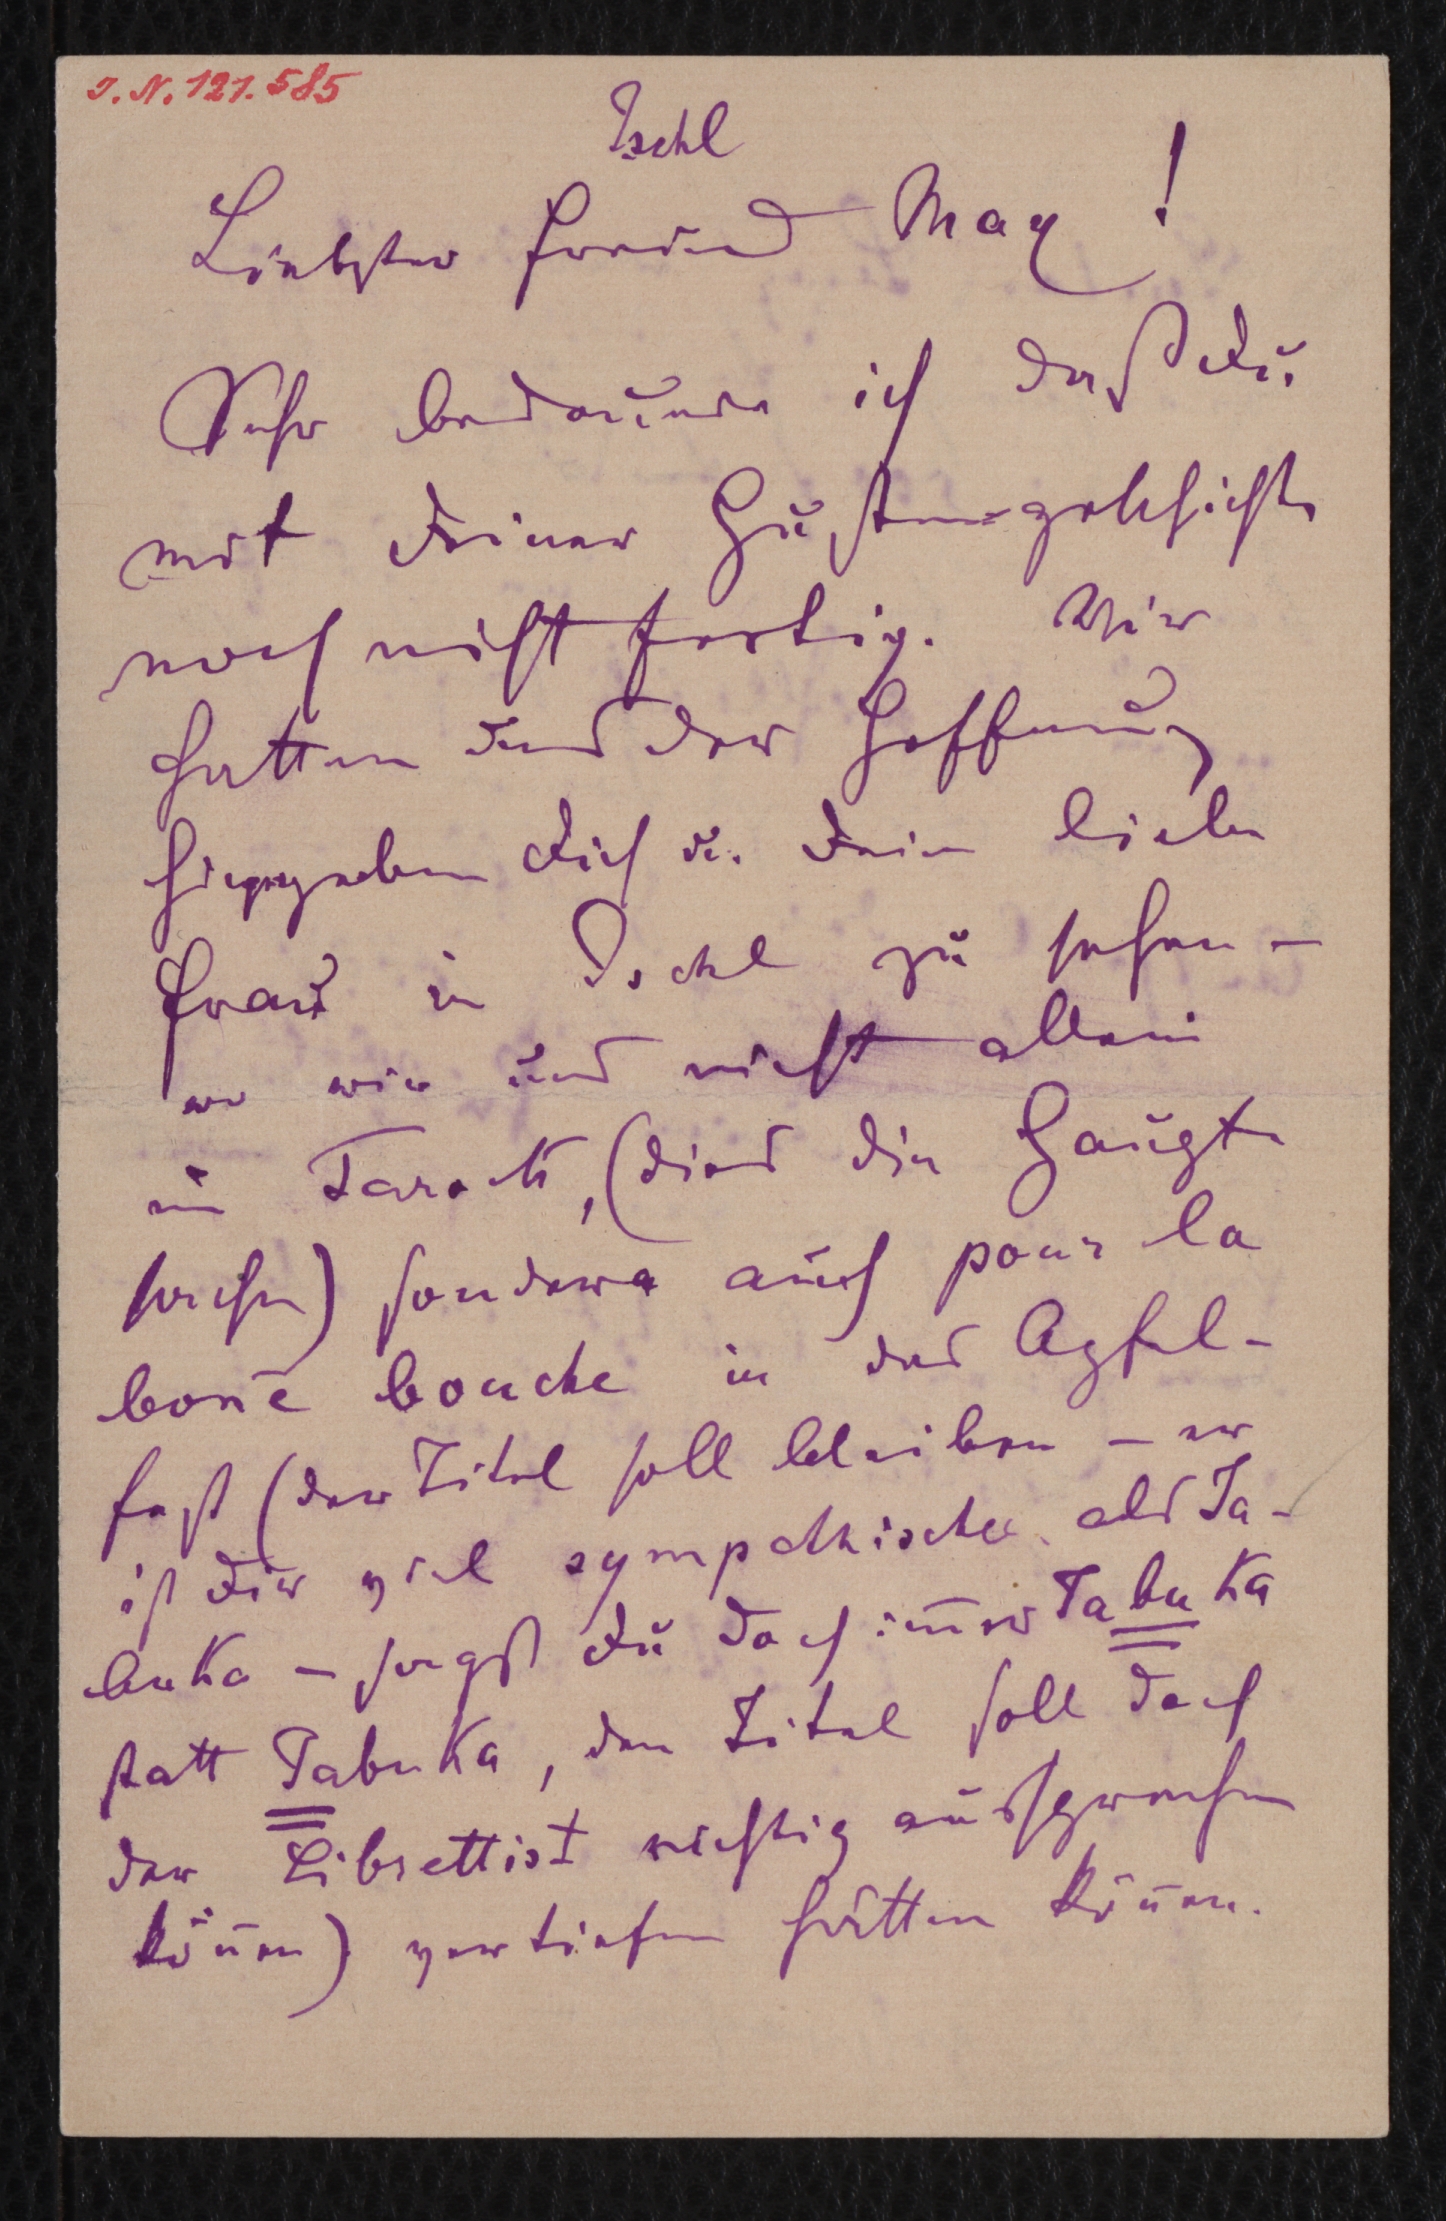 I. N. 121.585
Ischl
Liebster Freund Max!
Sehr bedauere ich daß Du
mit Deiner Hustengeschichte
noch nicht fertig. Wir
hatten uns der Hoffnung
hingegeben Dich u. Deine liebe
Frau in Ischl zu sehen –
wo wir uns nicht allein
in Tarock, (dies die Haupt
sache) sondern auch pour la
bonē bouche in das Apfel-
fest (der Titel soll bleiben – er
ist Dir viel sympathischer als Ja-
buka – sagst Du doch im̄er Tabuka
statt Tabuka, den Titel soll doch
der Librettist richtig aussprechen
kön̄en) vertiefen hätten kön̄en.